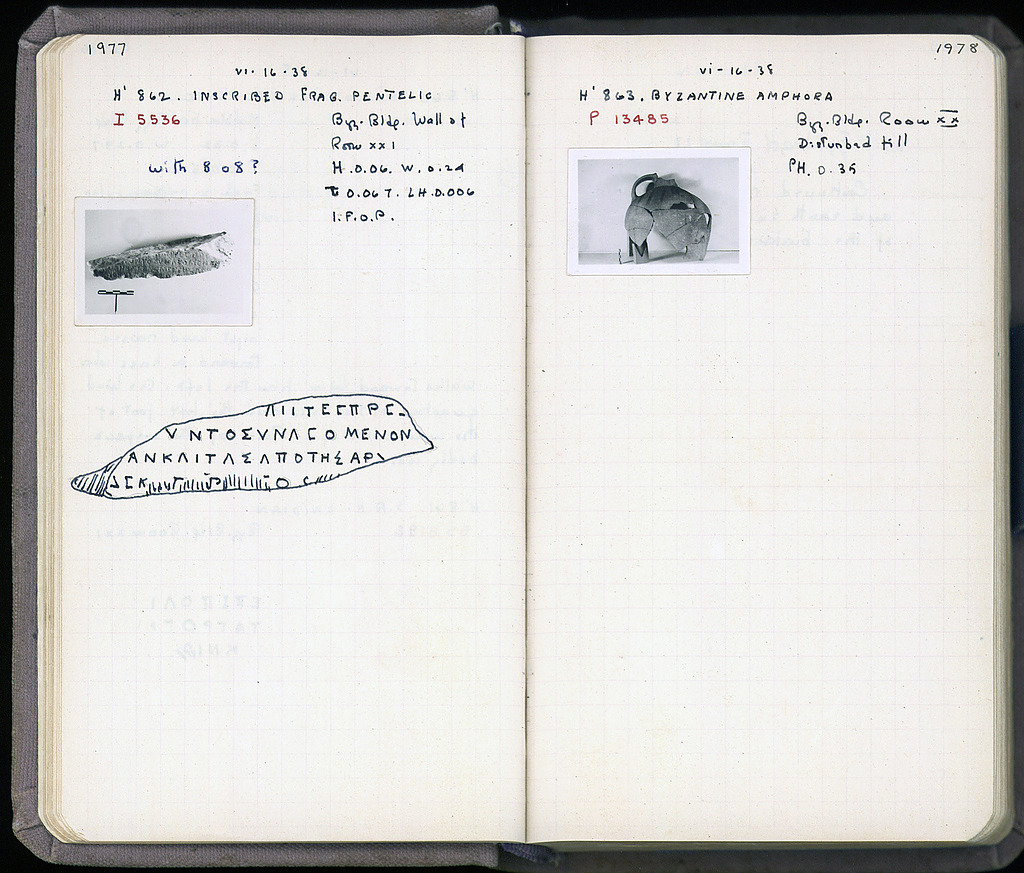 1977
VI-16-38
H' 862. INSCRIBED FRAG. PENTELIC
I 5536
Byz. Bldg. Wall of
Room XXI
with 808?
H. 0.06. W. 0.24
T 0.067. LH. 0.006
I.F.O.P.
ΝΤΟΣΥΝΛΓΟΜΕΝΟΝ
ΑΝΚΛΙΤΛΣΛΠΟΤΗΣΑΡ
1978
VI-16-38
H' 863. BYZANTINE AMPHORA
P 13485
Byz. Bldg. Room XX
Disturbed fill
PH. 0.35